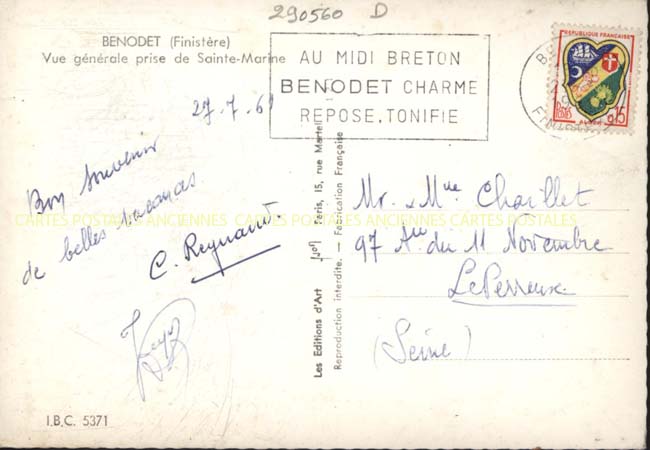 290560 D
BENODET (Finistère)
Vue générale prise de Sainte-Marine
AU MIDI BRETON
BENODET CHARME
REPOSE, TONIFIE
REPUBLIQUE FRANÇAISE
POSTES
0,15
ALGER
27.7.61
Bon souvenir
de belles vacances
C. Reynaud.
Mr. & Mme Chaillet
97 Av du 11 Novembre
Le Perreux
(Seine)
CARTES POSTALES ANCIENNES CARTES POSTALES ANCIENNES CARTES POSTALES
Les Editions d'Art Paris, 15, rue Martel
Reproduction interdite. - Fabrication Française
I.B.C. 5371